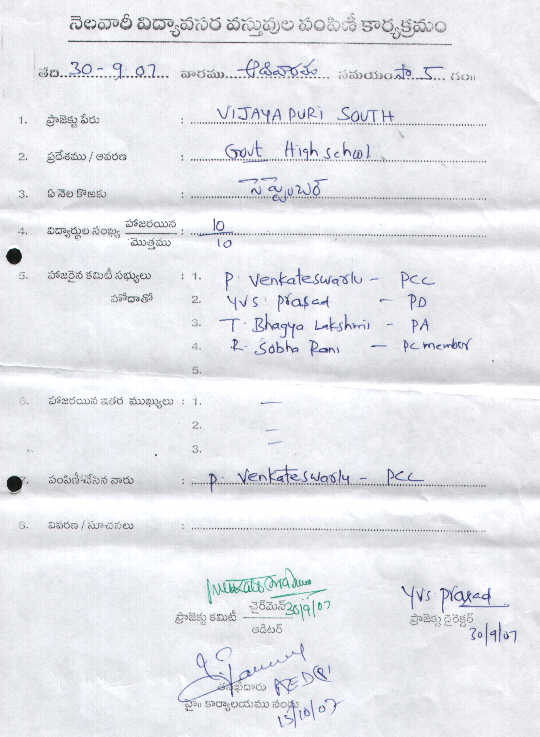 నెలవారీ విద్యావసర వస్తువుల పంపిణీ కార్యక్రమం
తేది 30-9-07 వారము ఆదివారం సమయం సా 5 గం॥
1. ప్రాజెక్టు పేరు : VIJAYAPURI SOUTH
2. ప్రదేశము / ఆవరణ : Govt High school
3. ఏ నెల కొఱకు : సెప్టెంబర్
4. విద్యార్థుల సంఖ్య హాజరయిన : 10
మొత్తము 10
5. హాజరైన కమిటీ సభ్యులు : 1. P. Venkateswarlu - PCC
హోదాతో 2. YVS Prasad - PD
3. T. Bhagya Lakshmi - PA
4. R. Sobha Rani - PC member
5.
6. హాజరయిన ఇతర ముఖ్యులు : 1. —
2. —
3. —
7. పంపిణీ చేసిన వారు : P. Venkateswarlu - PCC
8. వివరణ / సూచనలు :
ప్రాజెక్టు కమిటీ చైర్‌మెన్ 30/9/07
ఆడిటర్
YVS Prasad
ప్రాజెక్టు డైరెక్టర్
30/9/07
కార్యాలయము నందు
15/10/07